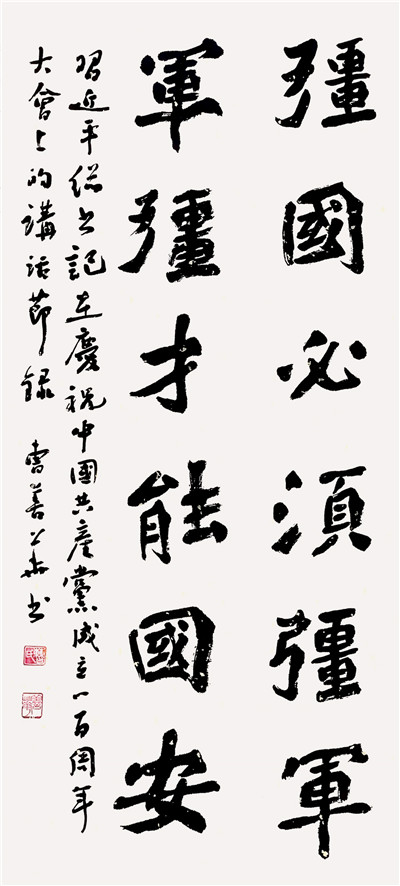 彊國必須彊軍
軍彊才能國安
習近平總书記在慶祝中國共產黨成立一百周年
大會上的講話節録 曹善 书